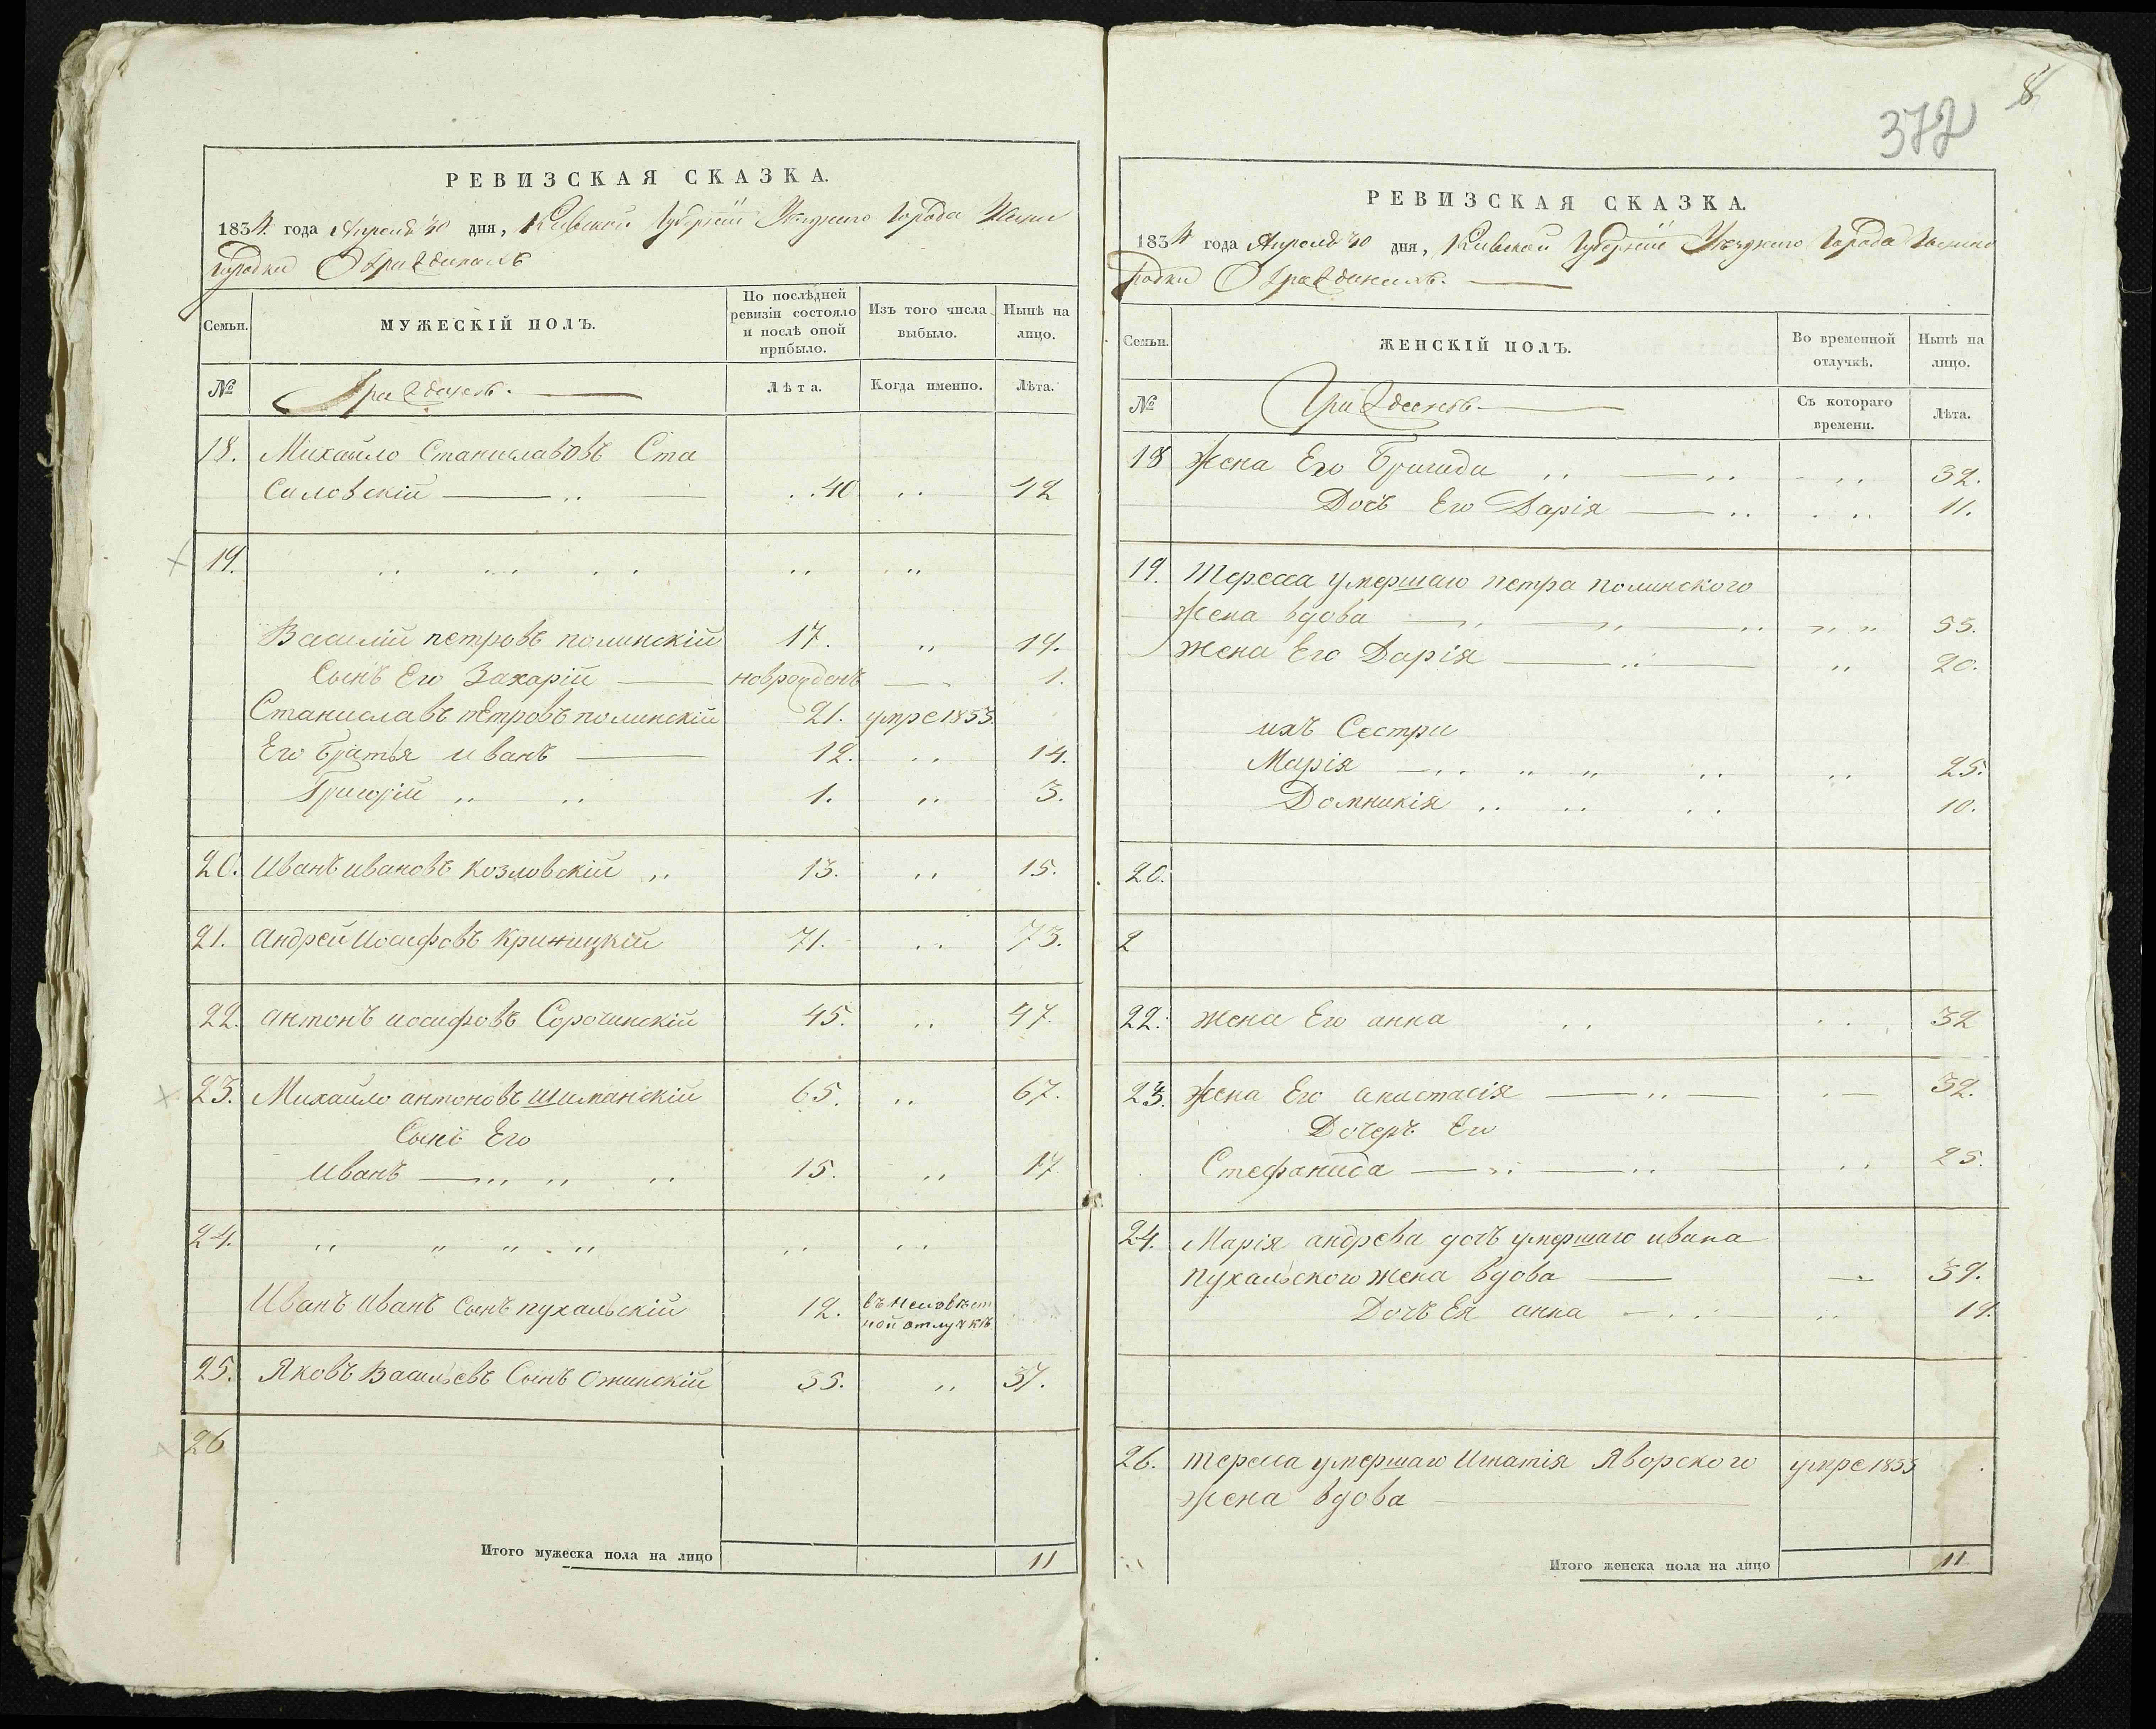 РЕВИЗСКАЯ СКАЗКА.
1834 года Апреля 30 дня, Киевской Губерніи Уезднаго Города Звени
городки О Гражданахъ
Семьи.
МУЖЕСКІЙ ПОЛЪ.
По послѣдней ревизіи состояло и послѣ оной прибыло.
Изъ того числа выбыло.
Нынѣ на лицо.
№
Граждане.
Лѣта.
Когда именно.
Лѣта.
18. Михайло Станиславовъ Ста
силовскій 40 42
19.
Василій петровъ полинскій 17. 19.
Сынъ Его Захарій новрожденъ 1.
Станиславъ петровъ полинскій 21. умре 1833.
Его братья иванъ 12. 14.
Григорій 1. 3.
20. Иванъ ивановъ козловскій 13. 15.
21. Андрей Иосифовъ криницкій 71. 73.
22. антонъ иосифовъ Сорочинскій 45. 47.
23. Михайло антоновъ шиманскій 65. 67.
Сынъ Его
иванъ 15. 17
24.
Иванъ Иванъ Сынъ пухальскій 12. въ неизвѣст
ной отлучкѣ
25. Яковъ Васильевъ Сынъ Ожинскій 35. 37.
26
Итого мужеска пола на лицо 11
8
372
РЕВИЗСКАЯ СКАЗКА.
1834 года Апреля 30 дня, Киевской Губерніи Уезднаго Города
О Гражданахъ.
Семьи.
ЖЕНСКІЙ ПОЛЪ.
Во временной отлучкѣ.
Нынѣ на лицо.
№
Граждане
Съ котораго времени.
Лѣта.
18 Жена Его Бригида 32.
Дочь Его Дарія 11.
19. Тересса умершаго петра полинского
жена вдова 55.
жена Его Дарія 20.
ихъ Сестри
Марія 25.
Домникія 10.
20.
2
22. жена Его анна 32
23. Жена Его анастасія 32.
Дочерь Его
Стефанида 25.
24. Марія андрева дочь умершаго ивана
пухальского жена вдова 39.
Дочь Ея анна 19.
26. тересса умершаго Игнатія Яворского умре 1833
жена вдова
Итого женска пола на лицо 11